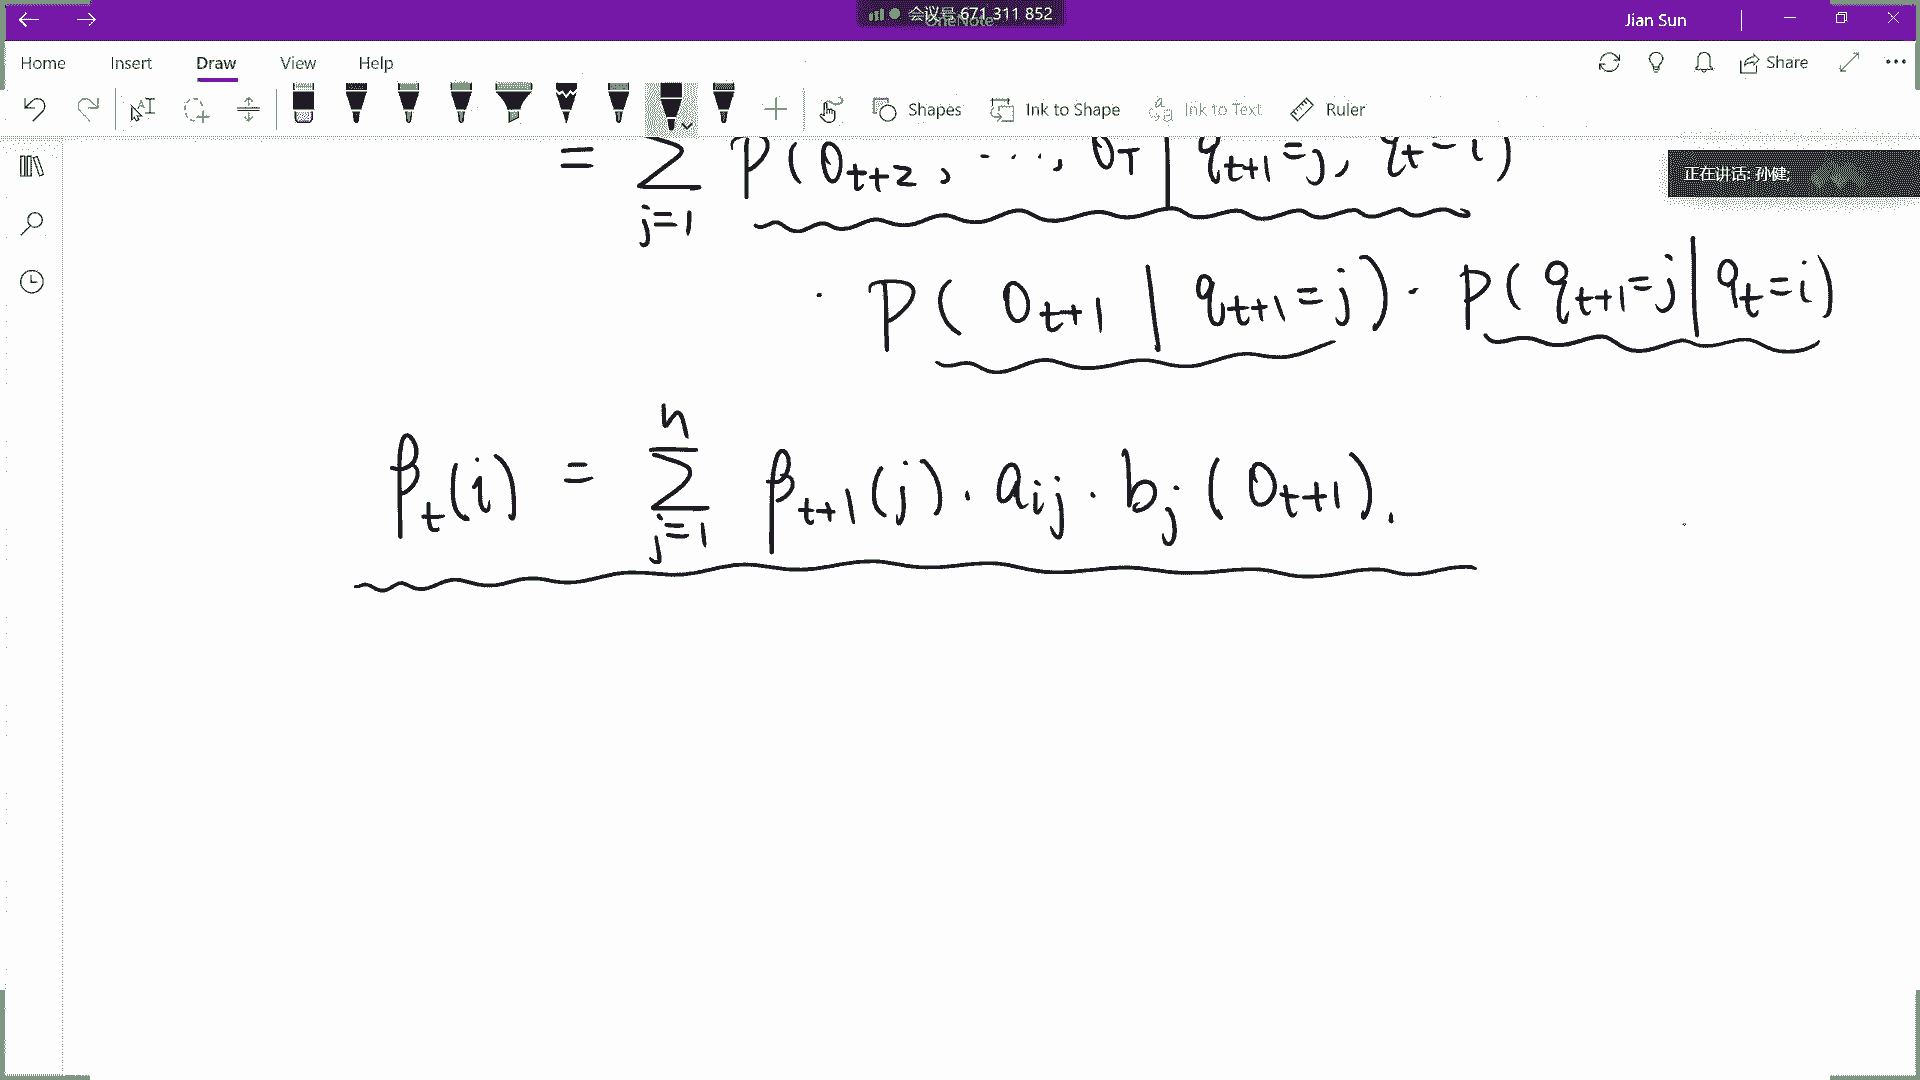 会议号 671 311 852
OneNote
Jian Sun
Home Insert Draw View Help
Share
Shapes Ink to Shape Ink to Text Ruler
正在讲话: 孙健;
= ∑_{j=1} P(O_{t+2}, ..., O_T | q_{t+1}=j, q_t=i)
· P(O_{t+1} | q_{t+1}=j) · P(q_{t+1}=j | q_t=i)
β_t(i) = ∑_{j=1}^{n} β_{t+1}(j) · a_{ij} · b_j(O_{t+1}).